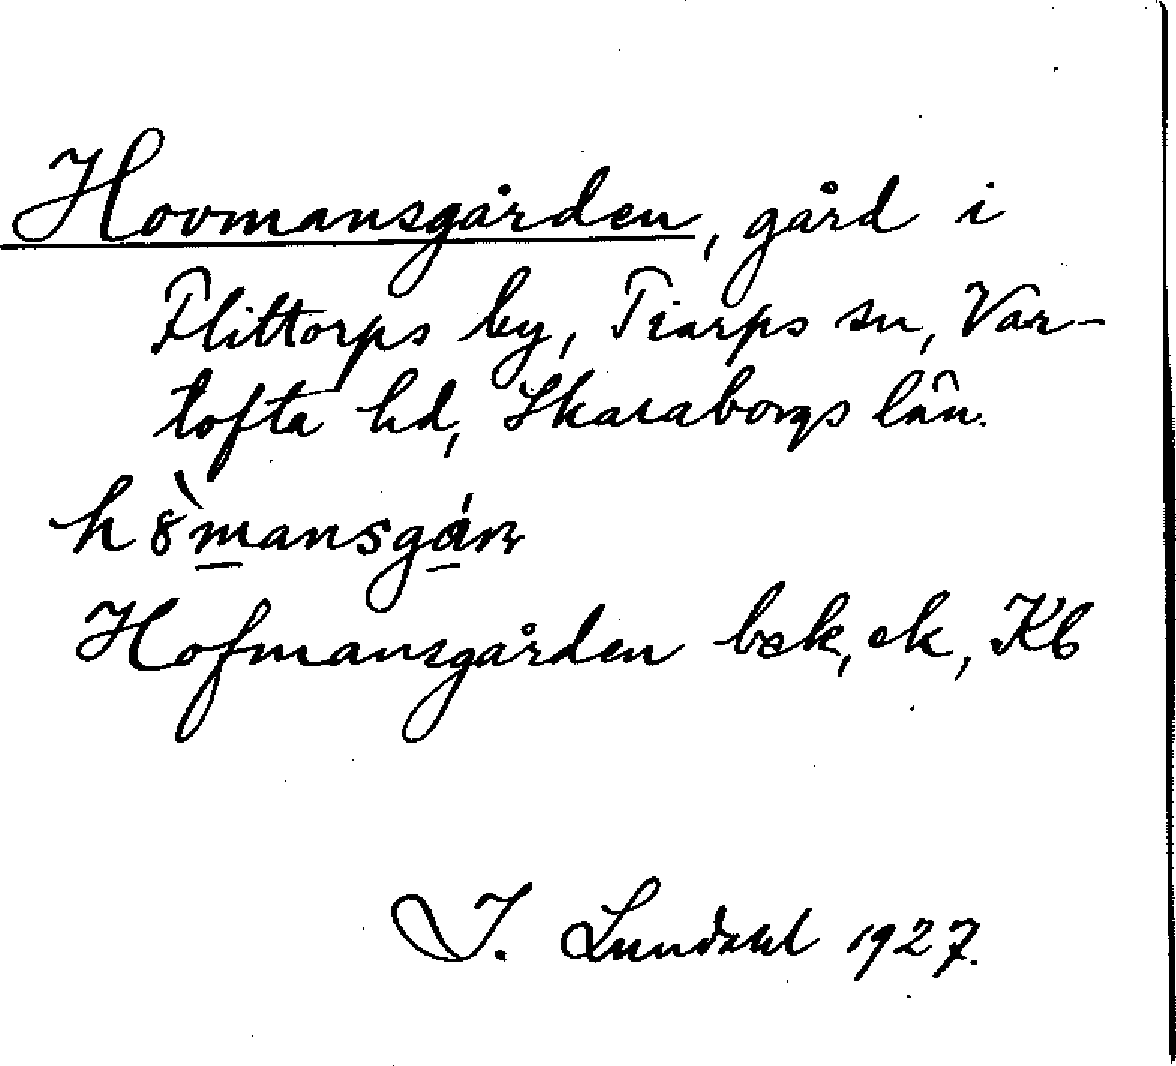 Hovmansgården, gård i
Flittorps by, Tiarps sn, Var-
tofta hd, Skaraborgs län.
Hofmansgården bek, ek, Kb
I. Lundahl 1927.